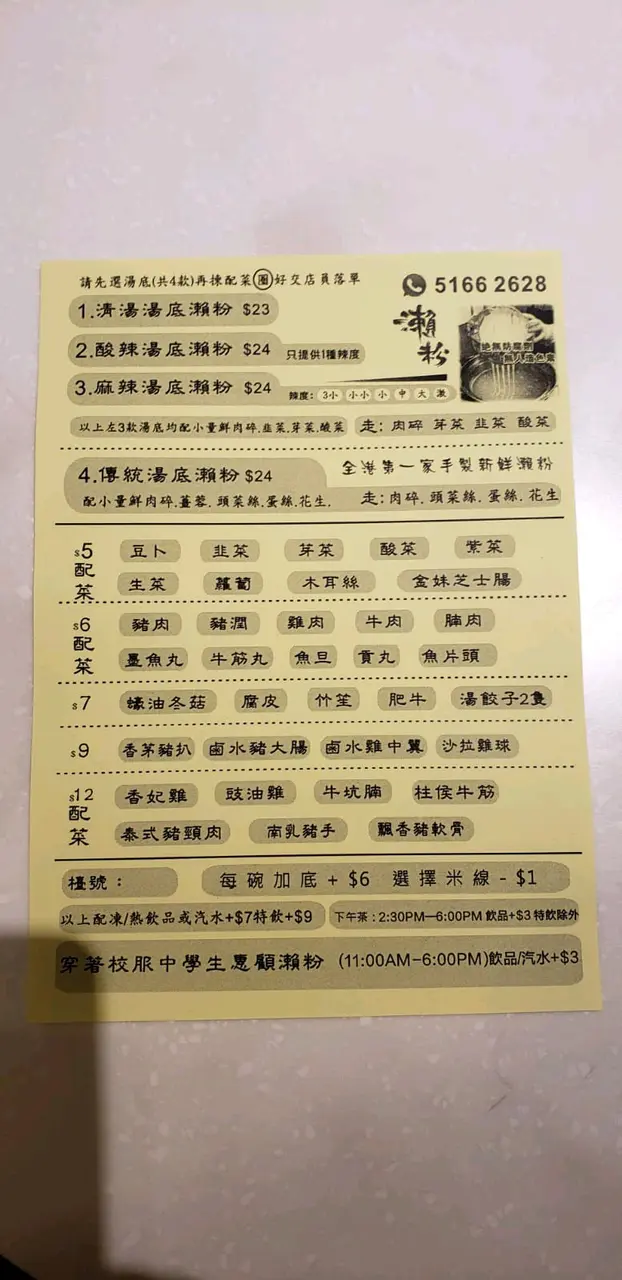 請先選湯底(共4款)再揀配菜圈好交店員落單
5166 2628
1.清湯湯底瀨粉 $23
2.酸辣湯底瀨粉 $24 只提供1種辣度
瀨粉
絕無防腐劑
無人造色素
3.麻辣湯底瀨粉 $24 辣度: 3小 小小 小 中 大 激
以上左3款湯底均配小量鮮肉碎.韭菜.芽菜.酸菜 走: 肉碎 芽菜 韭菜 酸菜
4.傳統湯底瀨粉 $24 全港第一家手製新鮮瀨粉
配小量鮮肉碎.薑蓉.頭菜絲.蛋絲.花生. 走:肉碎. 頭菜絲. 蛋絲. 花生
$5 配菜 豆卜 韭菜 芽菜 酸菜 紫菜
生菜 蘿蔔 木耳絲 金妹芝士腸
$6 配菜 豬肉 豬潤 雞肉 牛肉 腩肉
墨魚丸 牛筋丸 魚旦 貢丸 魚片頭
$7 蠔油冬菇 腐皮 竹笙 肥牛 湯餃子2隻
$9 香茅豬扒 鹵水豬大腸 鹵水雞中翼 沙拉雞球
$12 配菜 香妃雞 豉油雞 牛坑腩 柱侯牛筋
泰式豬頸肉 南乳豬手 飄香豬軟骨
檯號： 每碗加底 + $6 選擇米線 - $1
以上配凍/熱飲品或汽水+$7特飲+$9 下午茶：2:30PM—6:00PM 飲品+$3 特飲除外
穿著校服中學生惠顧瀨粉 (11:00AM-6:00PM)飲品/汽水+$3